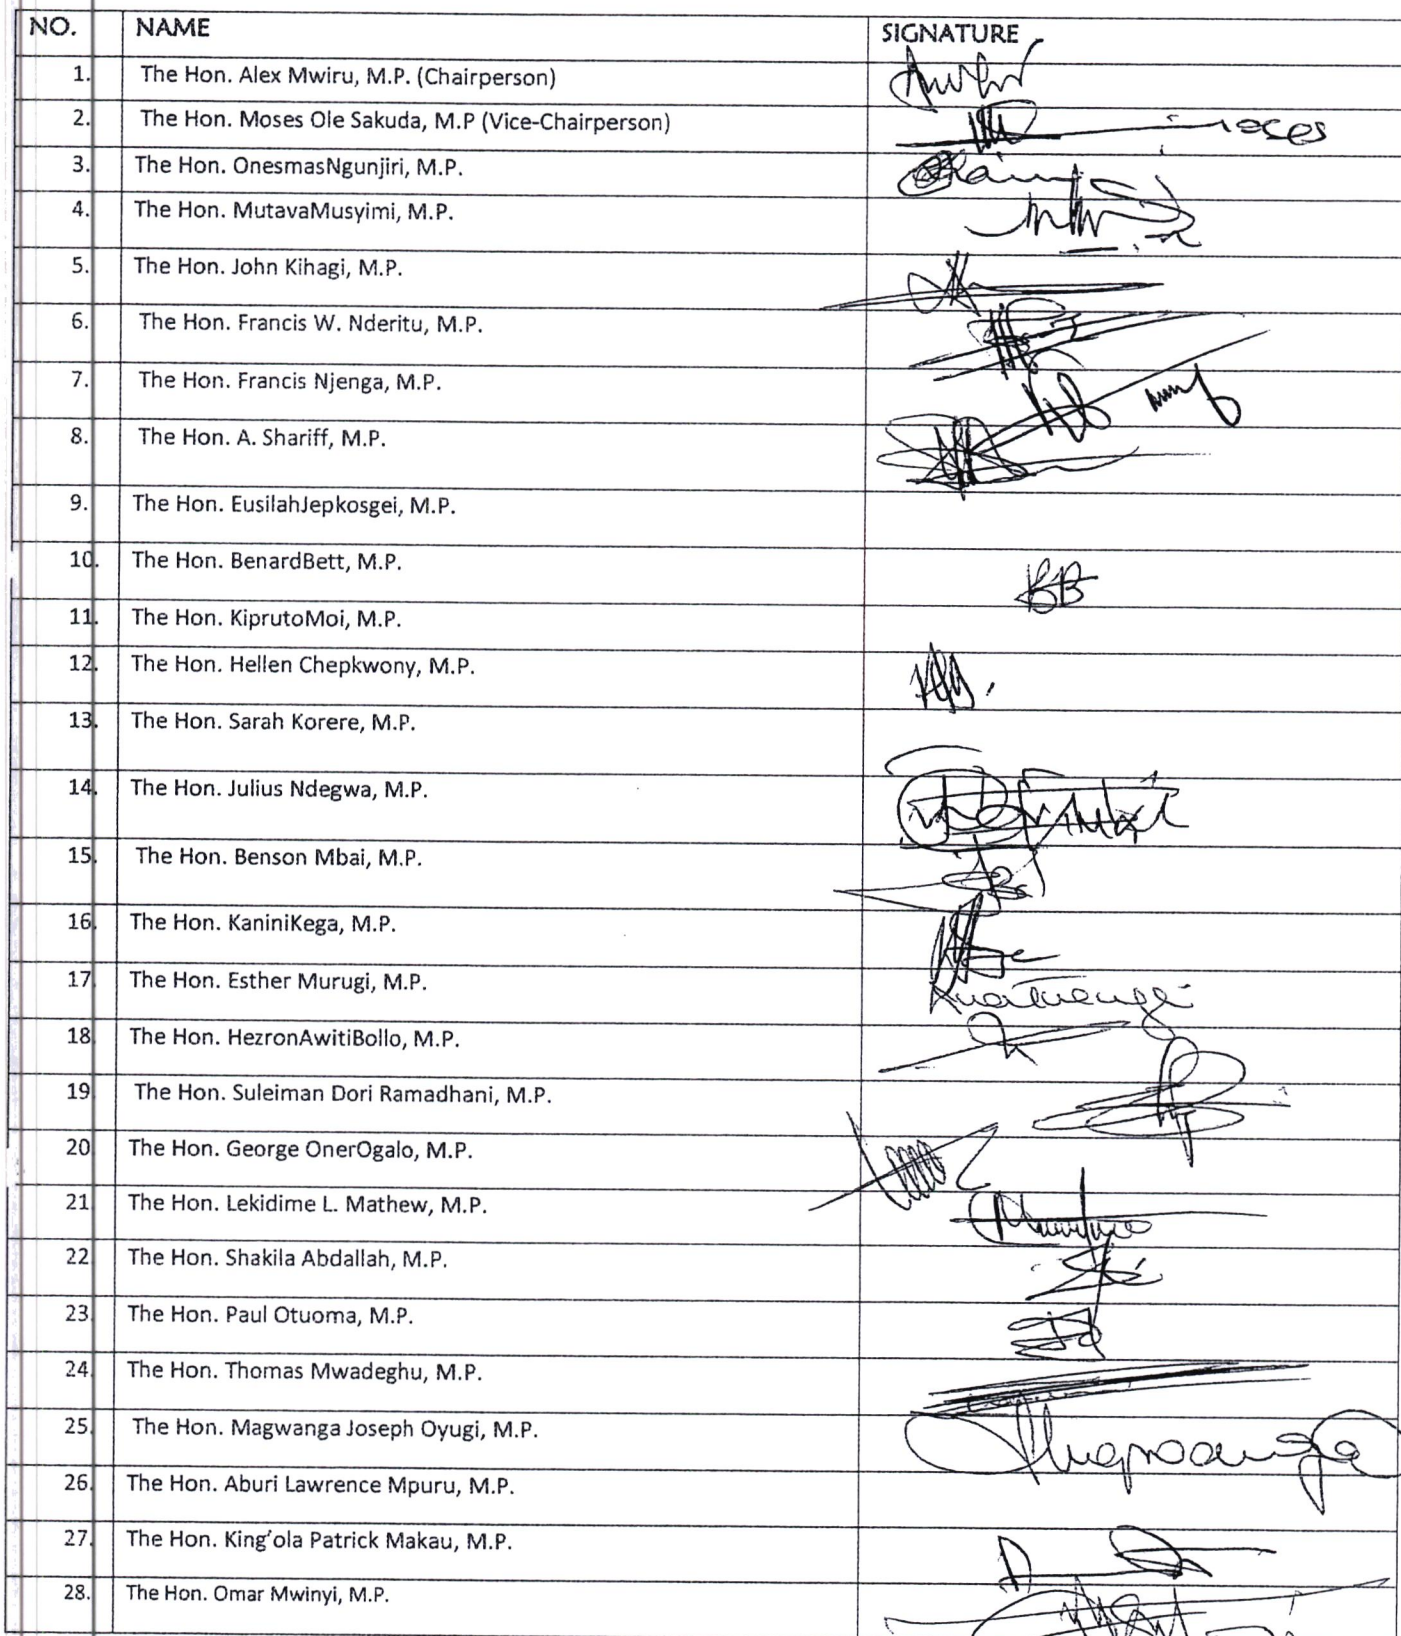 NO. NAME SIGNATURE
1. The Hon. Alex Mwiru, M.P. (Chairperson)
2. The Hon. Moses Ole Sakuda, M.P (Vice-Chairperson)
3. The Hon. OnesmasNgunjiri, M.P.
4. The Hon. MutavaMusyimi, M.P.
5. The Hon. John Kihagi, M.P.
6. The Hon. Francis W. Nderitu, M.P.
7. The Hon. Francis Njenga, M.P.
8. The Hon. A. Shariff, M.P.
9. The Hon. EusilahJepkosgei, M.P.
10. The Hon. BenardBett, M.P.
11. The Hon. KiprutoMoi, M.P.
12. The Hon. Hellen Chepkwony, M.P.
13. The Hon. Sarah Korere, M.P.
14. The Hon. Julius Ndegwa, M.P.
15. The Hon. Benson Mbai, M.P.
16. The Hon. KaniniKega, M.P.
17 The Hon. Esther Murugi, M.P.
18 The Hon. HezronAwitiBollo, M.P.
19 The Hon. Suleiman Dori Ramadhani, M.P.
20 The Hon. George OnerOgalo, M.P.
21 The Hon. Lekidime L. Mathew, M.P.
22 The Hon. Shakila Abdallah, M.P.
23 The Hon. Paul Otuoma, M.P.
24 The Hon. Thomas Mwadeghu, M.P.
25 The Hon. Magwanga Joseph Oyugi, M.P.
26. The Hon. Aburi Lawrence Mpuru, M.P.
27. The Hon. King'ola Patrick Makau, M.P.
28. The Hon. Omar Mwinyi, M.P.